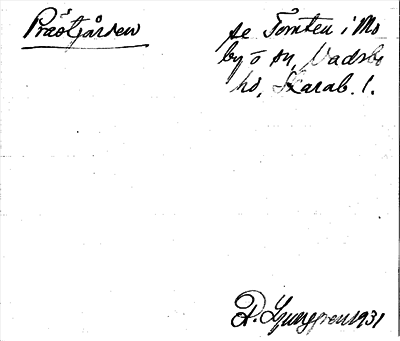 Prästgården
se Tomten i Mo
by o sn, Vadsbo
hd, Skarab. l.
D. Ljunggren 1931